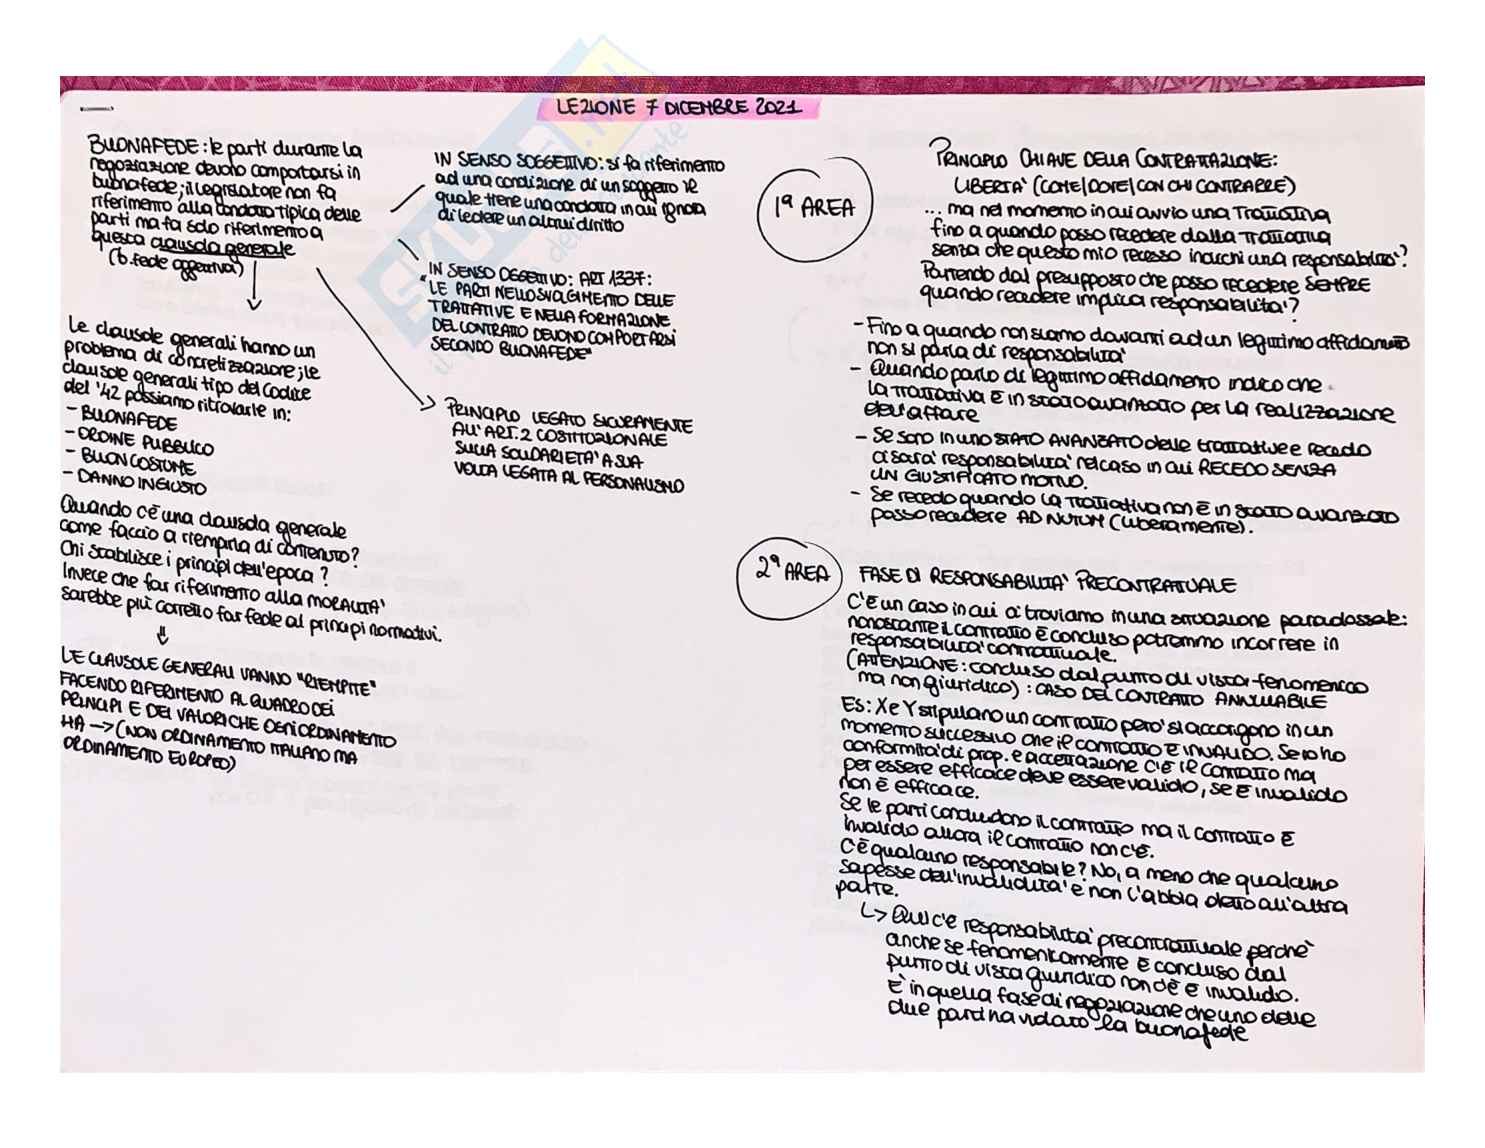 LEZIONE 7 DICEMBRE 2021
BUONAFEDE: le parti durante la
negoziazione devono comportarsi in
buonafede; il legislatore non fa
riferimento alla condotta tipica delle
parti ma fa solo riferimento a
questa clausola generale
(b. fede oggettiva)
Le clausole generali hanno un
problema di concretizzazione; le
clausole generali tipo del Codice
del '42 possiamo ritrovarle in:
- BUONAFEDE
- ORDINE PUBBLICO
- BUON COSTUME
- DANNO INGIUSTO
Quando c'è una clausola generale
come faccio a riempirla di contenuto?
Chi stabilisce i principi dell'epoca?
Invece che far riferimento alla MORALITA'
sarebbe più corretto far fede ai principi normativi.
LE CLAUSOLE GENERALI VANNO "RIEMPITE"
FACENDO RIFERIMENTO AL QUADRO DEI
PRINCIPI E DEI VALORI CHE OGNI ORDINAMENTO
HA —> (NON ORDINAMENTO ITALIANO MA
ORDINAMENTO EUROPEO)
IN SENSO SOGGETTIVO: si fa riferimento
ad una condizione di un soggetto il
quale tiene una condotta in cui ignora
di ledere un altrui diritto
IN SENSO OGGETTIVO: ART 1337:
"LE PARTI NELLO SVOLGIMENTO DELLE
TRATTATIVE E NELLA FORMAZIONE
DEL CONTRATTO DEVONO COMPORTARSI
SECONDO BUONAFEDE"
PRINCIPIO LEGATO SICURAMENTE
ALL' ART. 2 COSTITUZIONALE
SULLA SOLIDARIETA' A SUA
VOLTA LEGATA AL PERSONALISMO
1ª AREA
PRINCIPIO CHIAVE DELLA CONTRATTAZIONE:
LIBERTA' (COME/DOVE/CON CHI CONTRARRE)
... ma nel momento in cui avvio una Trattativa
fino a quando posso recedere dalla Trattativa
senza che questo mio recesso implichi una responsabilità?
Partendo dal presupposto che posso recedere SEMPRE
quando recedere implica responsabilita'?
- Fino a quando non siamo davanti ad un legittimo affidamento
non si parla di responsabilità
- Quando parlo di legittimo affidamento indico che
la Trattativa È in stato avanzato per la realizzazione
dell'affare
- Se sono in uno STATO AVANZATO delle trattative e recedo
ci sara' responsabilità nel caso in cui RECEDO SENZA
UN GIUSTIFICATO MOTIVO.
- Se recedo quando la Trattativa non È in stato avanzato
posso recedere AD NUTUM (liberamente).
2ª AREA
FASE DI RESPONSABILITA' PRECONTRATTUALE
C'È un caso in cui ci troviamo in una situazione paradossale:
nonostante il contratto È concluso potremmo incorrere in
responsabilità contrattuale.
(ATTENZIONE: concluso dal punto di vista fenomenico
ma non giuridico): CASO DEL CONTRATTO ANNULLABILE
Es: X e Y stipulano un contratto pero' si accorgono in un
momento successivo che il contratto È INVALIDO. Se io ho
conformita' di prop. e accettazione C'È il Contratto ma
per essere efficace deve essere valido, se È invalido
non È efficace.
Se le parti concludono il contratto ma il contratto È
invalido allora il contratto non c'È.
C'È qualcuno responsabile? No, a meno che qualcuno
sapesse dell'invalidità e non l'abbia detto all'altra
parte.
↳ Qui c'è responsabilità precontrattuale perchè
anche se fenomenicamente È concluso dal
punto di vista giuridico non c'è È invalido.
È in quella fase di negoziazione che uno delle
due parti ha violato la buonafede
SKUOLA.NET